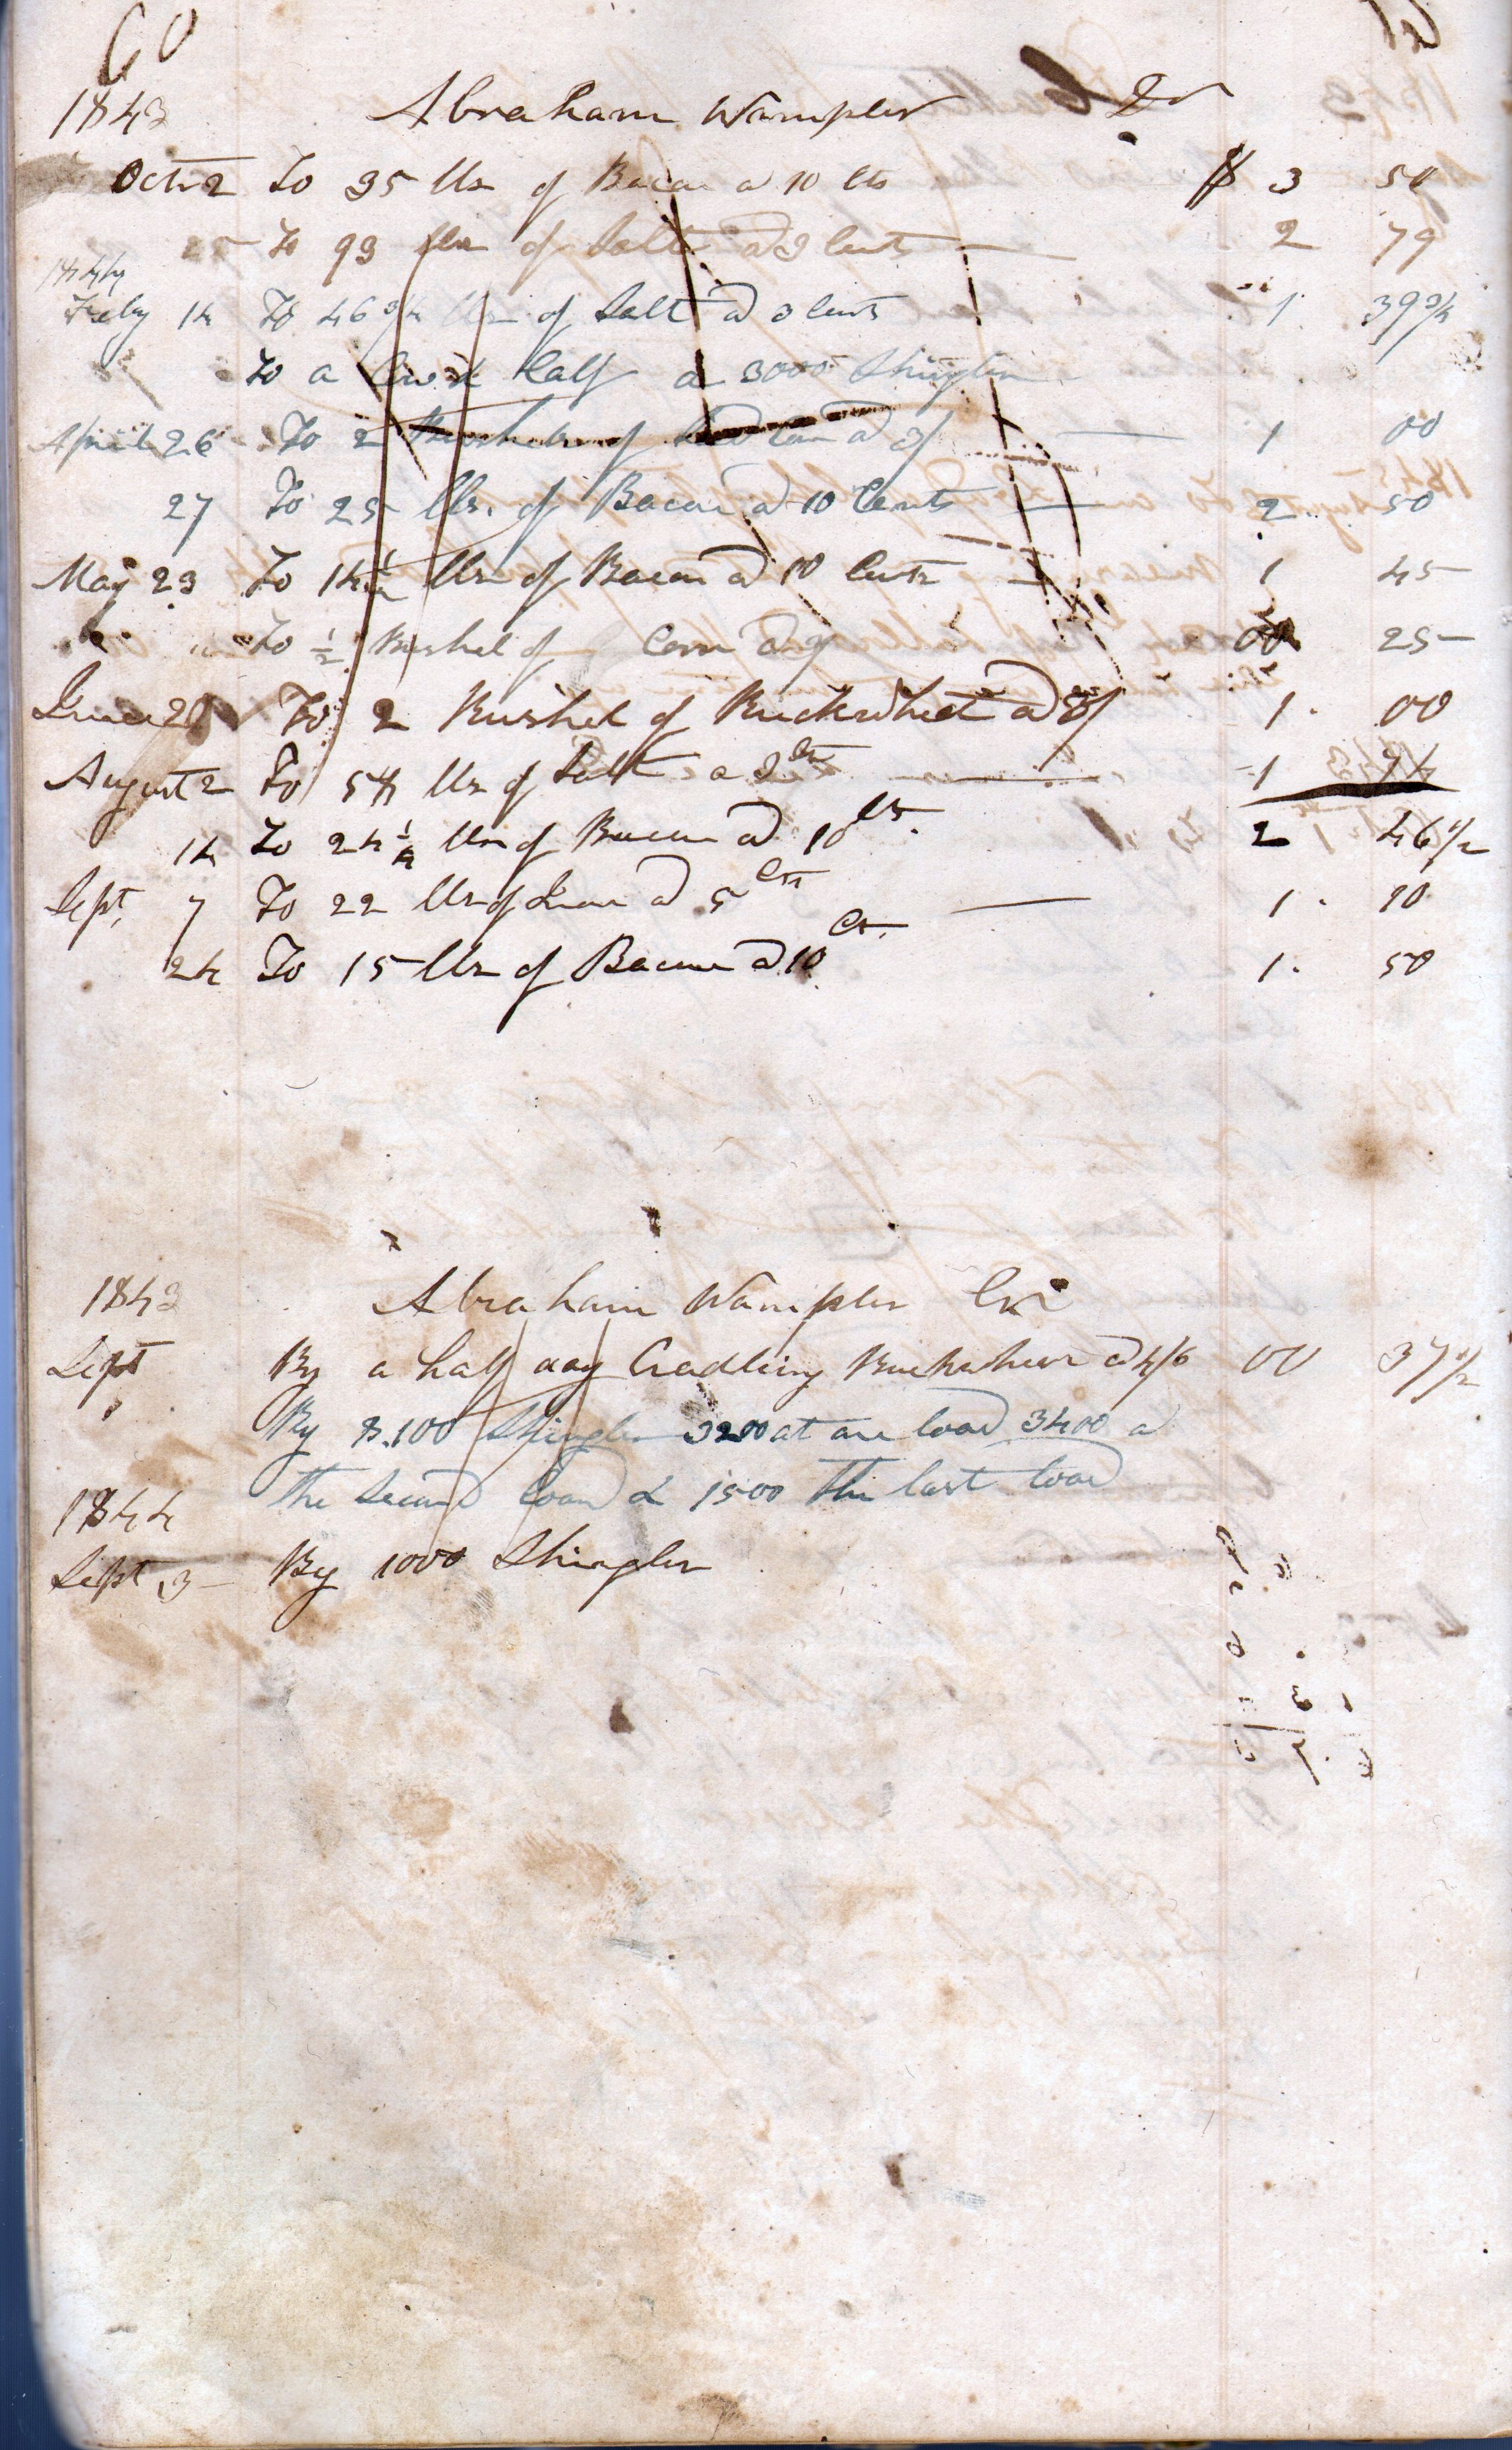 60
1843 Abraham Wampler Dr
Octr 2 To 35 lbs of Bacon a 10 cts $ 3 50
25 To 93 lbs of Salt a 3 cents 2 79
1844
Feby 14 To 46 3/4 lbs of Salt a 3 cents 1 39 3/4
To a Calf a 3000 Shingles
April 26 To 2 Bushels of a 3/ 1 00
27 To 25 lbs. of Bacon a 10 Cents 2 50
May 23 To 14 1/2 lbs of Bacon a 10 Cents 1 45
" " To 1/2 Bushel of Corn a 25
June To 2 Bushel of Buckwheat a 1 00
August 2 To 54 lbs of Salt a 3 cts 1
14 To 24 1/2 lbs of Bacon a 10 cts. 2 46 1/2
Sept. 7 To 22 lbs of Iron a 5 cts 1 10
24 To 15 lbs of Bacon a 10 cts. 1 50
1843 Abraham Wampler Cr
Sept By a half day Cradling Buckwheat a 4/6 00 37 1/2
" By 8.100 Shingles 3200 at one load 3400 a
the Second load & 1500 the last load
1844
Sept 3 By 1000 Shingles